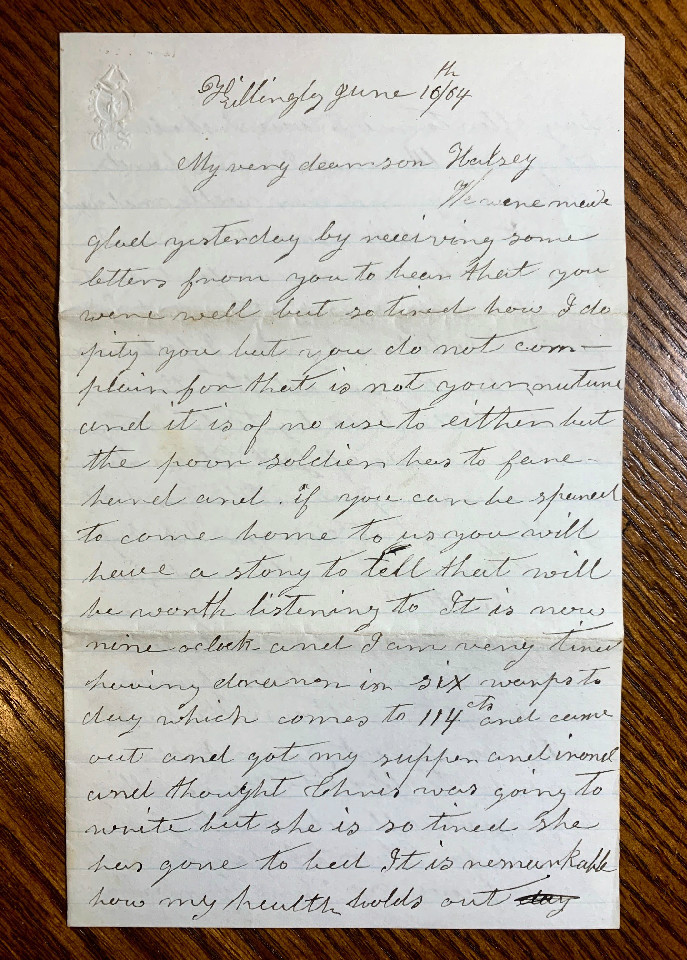 Killingly June 16th/64
My very dear son Halsey
We were made
glad yesterday by receiving some
letters from you to hear that you
were well but so tired how I do
pity you but you do not com-
plain for that is not your nature
and it is of no use to either but
the poor soldier has to fare
hard and . if you can be spared
to come home to us you will
have a story to tell that will
be worth listening to It is now
nine oclock and I am very tired
having drawn in six warps to
day which comes to 114cts and came
out and got my supper and ironed
and thought Chris was going to
write but she is so tired she
has gone to bed It is remarkable
how my health holds out day